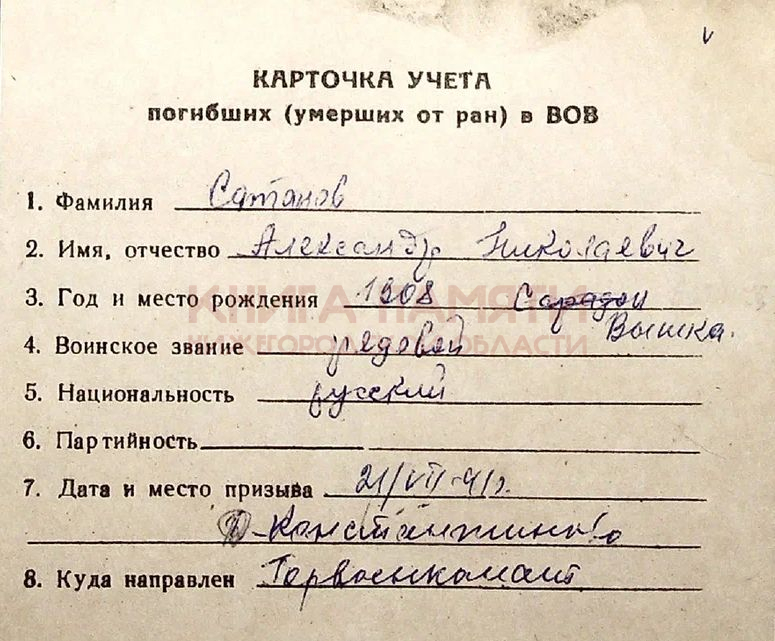 КАРТОЧКА УЧЕТА
погибших (умерших от ран) в ВОВ
1. Фамилия Сатанов
2. Имя, отчество Александр Николаевич
3. Год и место рождения 1908
Вышка.
4. Воинское звание рядовой
5. Национальность русский
6. Партийность
7. Дата и место призыва 21/VII-41г.
Д-Константиново
8. Куда направлен Горвоенкомат
КНИГА ПАМЯТИ
НИЖЕГОРОДСКОЙ ОБЛАСТИ